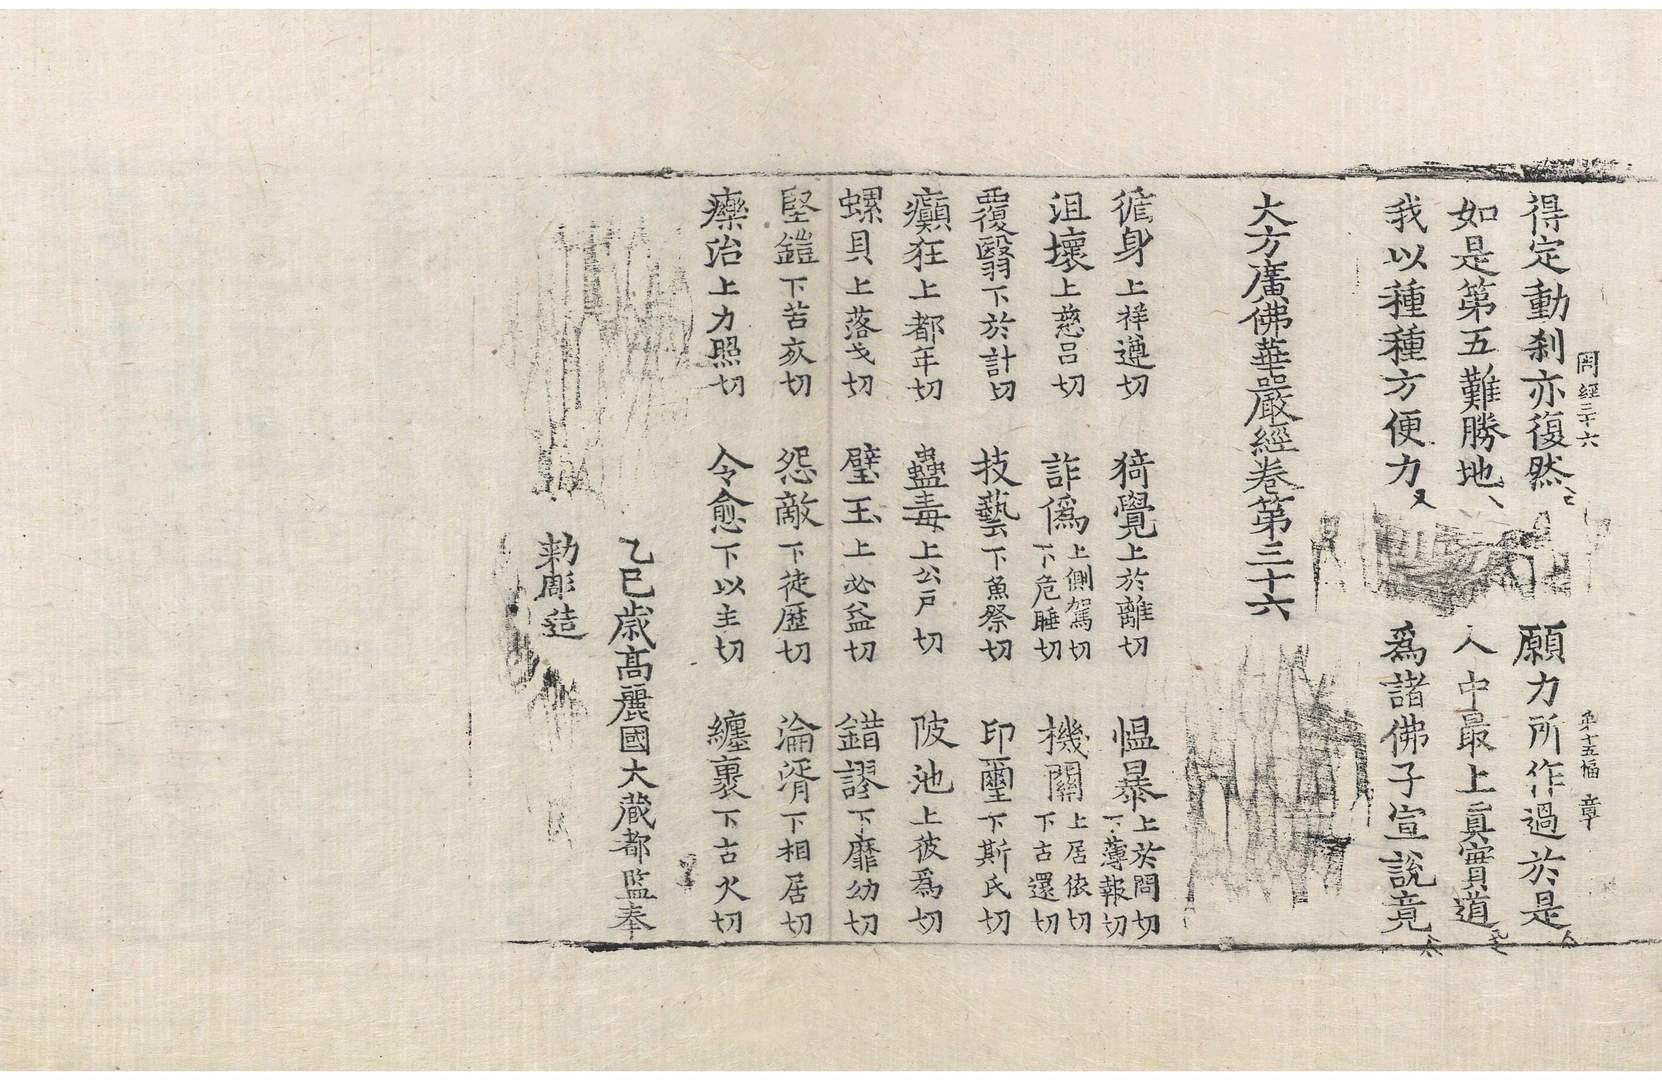 周經三十六 第十五幅 章
得定動刹亦復然 願力所作過於是
如是第五難勝地 人中最上眞實道
我以種種方便力 爲諸佛子宣說竟
大方廣佛華嚴經卷第三十六
徇身上祥遵切 猗覺上於離切 愠暴上於問切下薄報切
沮壞上慈呂切 詐僞上側駕切下危睡切 機關上居依切下古還切
覆翳下於計切 技藝下魚祭切 印璽下斯氏切
癲狂上都年切 蠱毒上公戶切 陂池上彼爲切
螺貝上落戈切 璧玉上必益切 錯謬下靡幼切
堅鎧下苦亥切 怨敵下徒歷切 淪湑下相居切
療治上力照切 令愈下以主切 纏裹下古火切
乙巳歲高麗國大藏都監奉
勑彫造